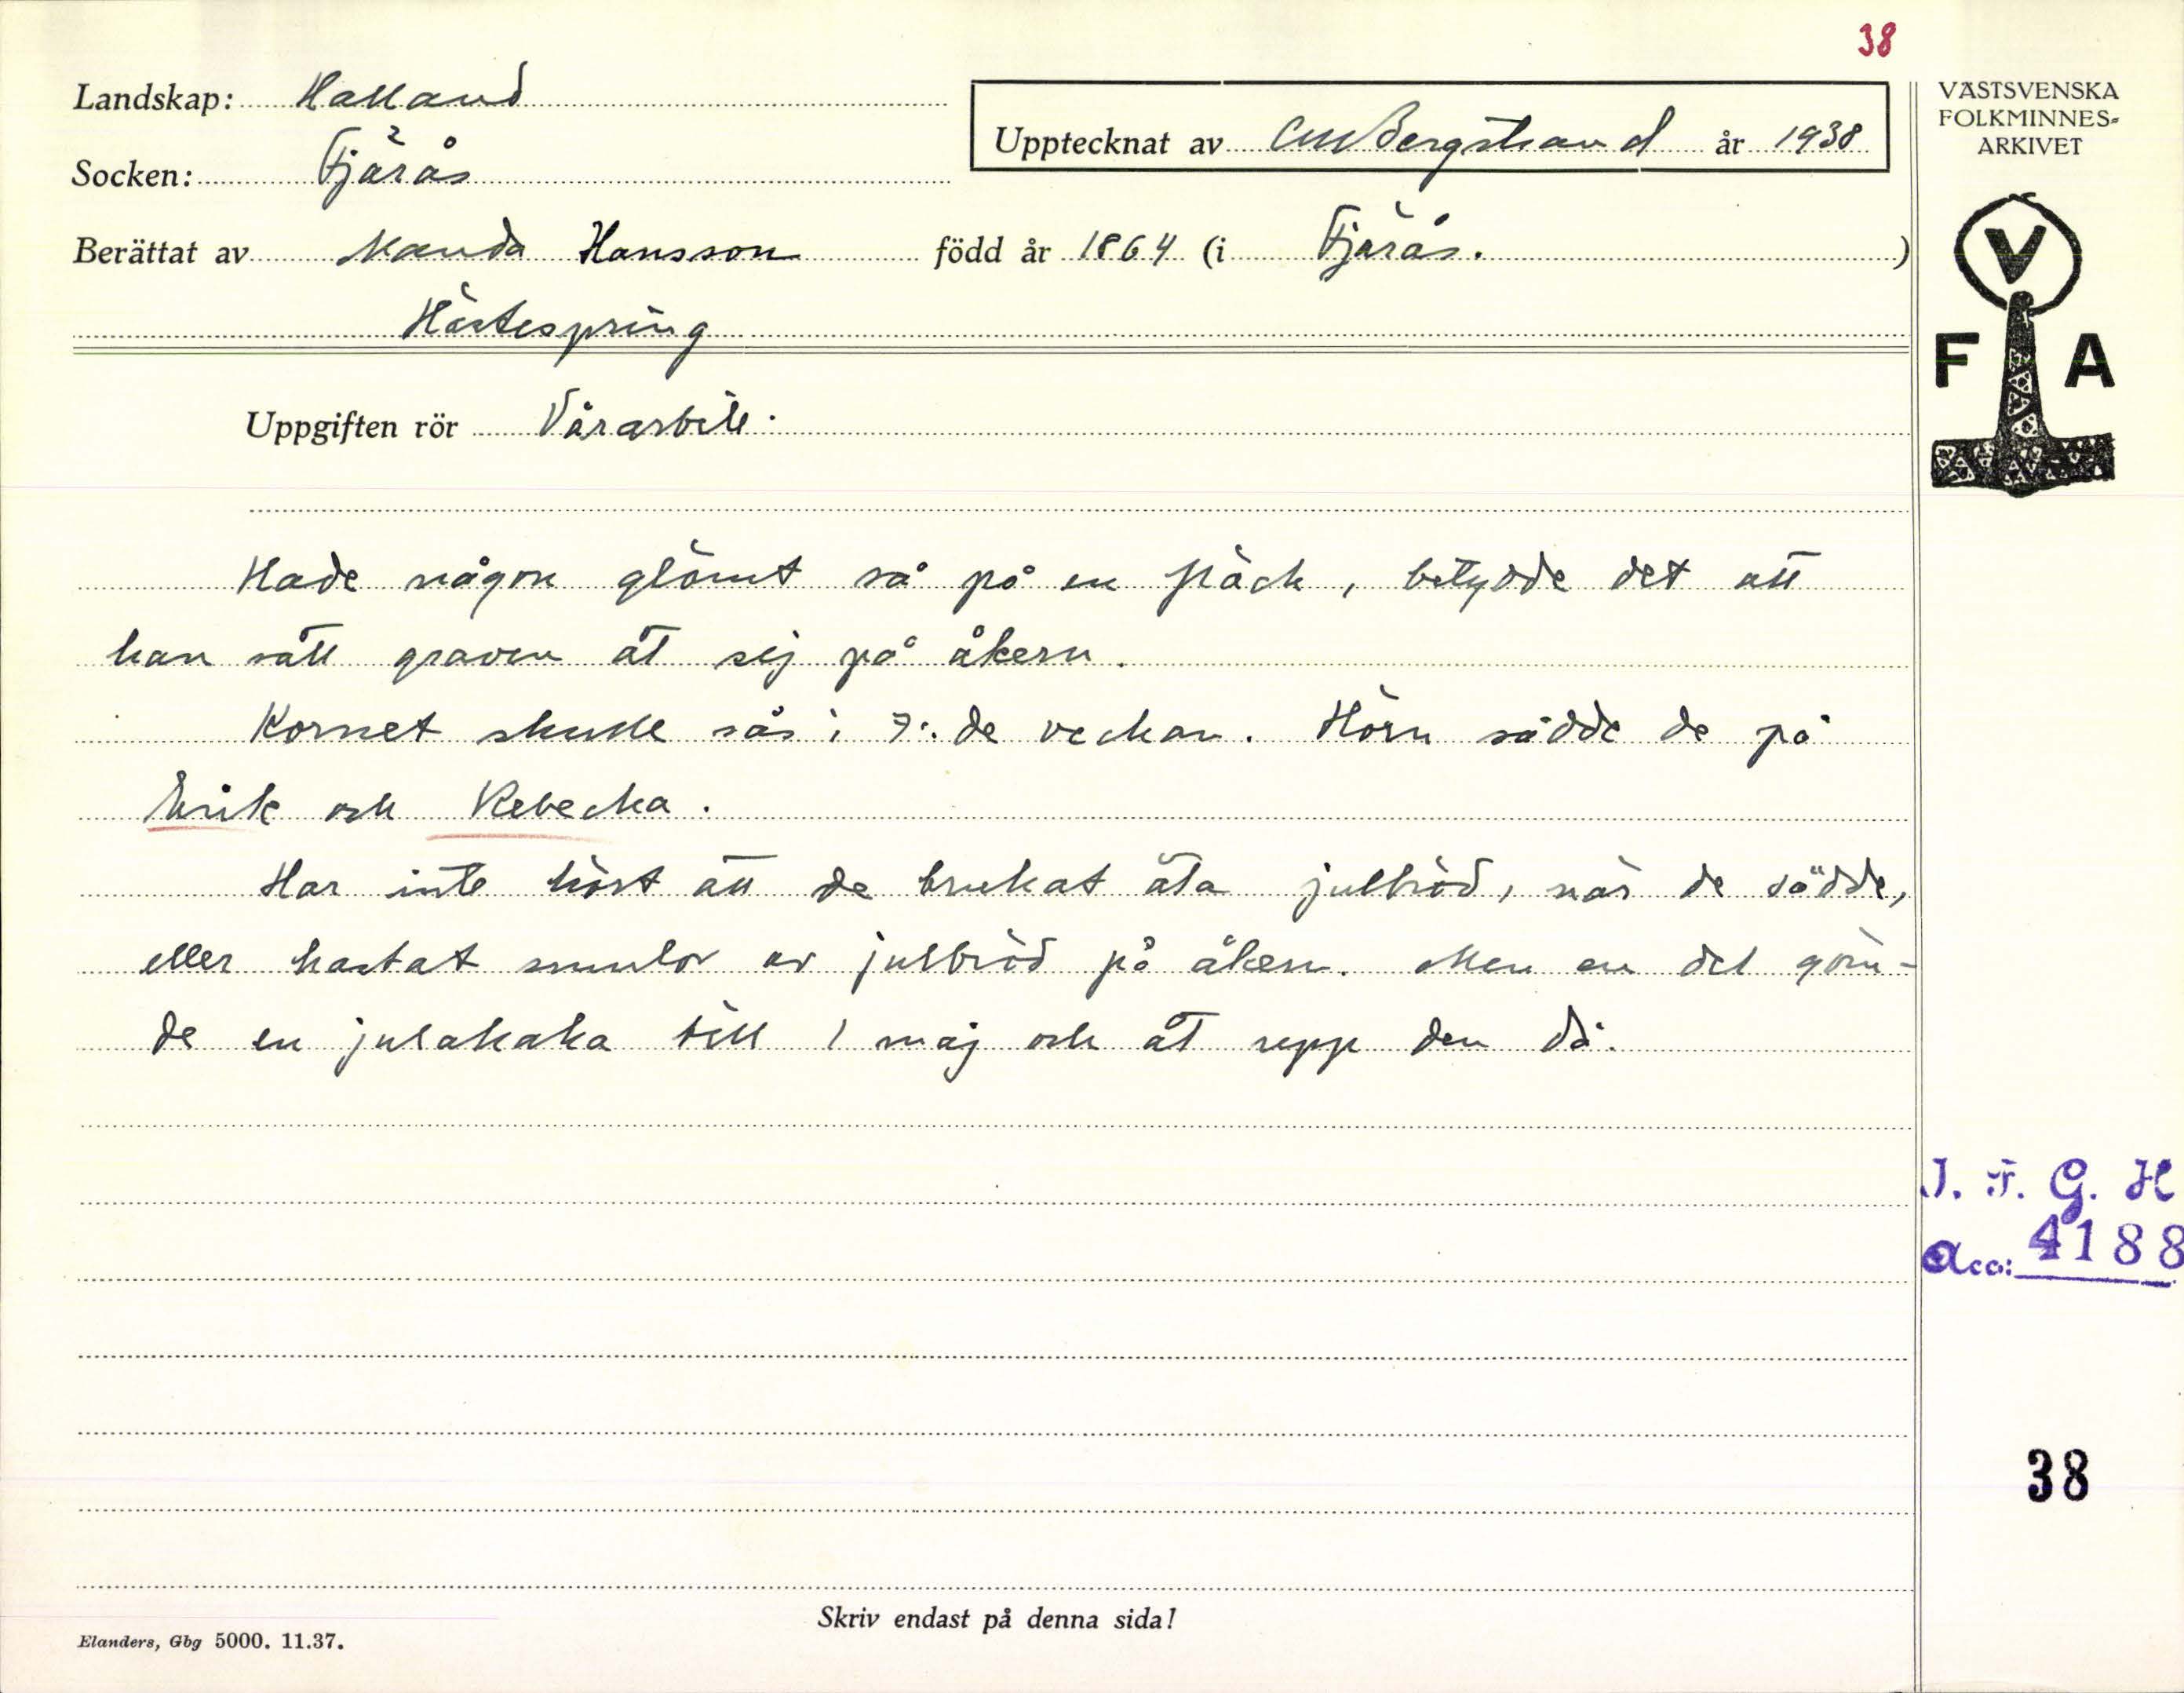 38
Landskap: Halland
Upptecknat av CMBergstrand år 1938
VÄSTSVENSKA
FOLKMINNES-
ARKIVET
Socken: Fjärås
Berättat av Manda Hansson född år 1864 (i Fjärås. )
Hästespring
V
F A
Uppgiften rör Vårarbete.
Hade någon glömt så på en fläck, betydde det att
han sått graven åt sej på åkern.
Kornet skulle sås i 7:de veckan. Hörn sådde de på
Erik och Rebecka.
Har inte hört att de brukat äta julbröd, när de sådde,
eller kastat smulor av julbröd på åkern. Men en del göm-
de en julakaka till 1 maj och åt upp den då.
I. F. G. H
Acc: 4188
38
Skriv endast på denna sida!
Elanders, Gbg 5000. 11.37.